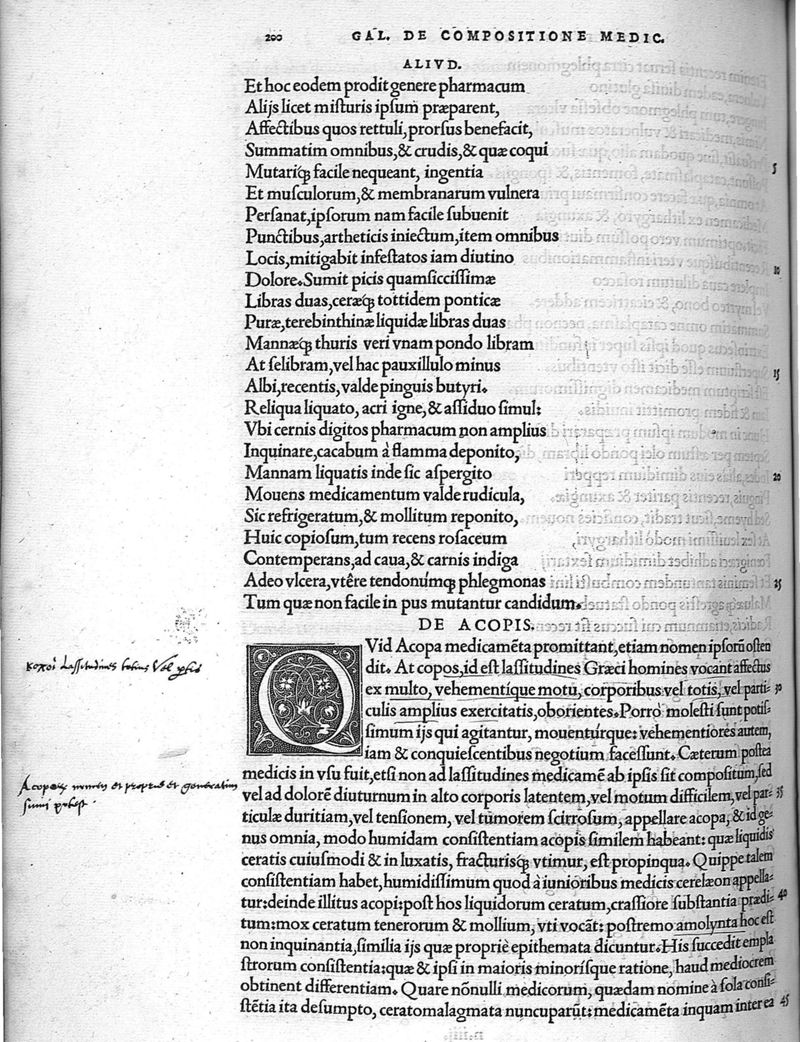 200 GAL. DE COMPOSITIONE MEDIC.
ALIVD.
Et hoc eodem prodit genere pharmacum
Alijs licet misturis ipsum præparent,
Affectibus quos rettuli, prorsus benefacit,
Summatim omnibus, & crudis, & quæ coqui
Mutariq́; facile nequeant, ingentia 5
Et musculorum, & membranarum vulnera
Persanat, ipsorum nam facile subuenit
Punctibus, artheticis iniectum, item omnibus
Locis, mitigabit infestatos iam diutino
Dolore. Sumit picis quamsiccissimæ 10
Libras duas, ceræq́; tottidem ponticæ
Puræ, terebinthinæ liquidæ libras duas
Mannæq́; thuris veri vnam pondo libram
At selibram, vel hac pauxillulo minus
Albi, recentis, valde pinguis butyri. 15
Reliqua liquato, acri igne, & assiduo simul:
Vbi cernis digitos pharmacum non amplius
Inquinare, cacabum à flamma deponito,
Mannam liquatis inde sic aspergito 20
Mouens medicamentum valde rudicula,
Sic refrigeratum, & mollitum reponito,
Huic copiosum, tum recens rosaceum
Contemperans, ad caua, & carnis indiga
Adeo vlcera, vtêre tendonúmq́; phlegmonas 25
Tum quæ non facile in pus mutantur candidum.
DE ACOPIS.
QVid Acopa medicamẽta promittant, etiam nomen ipsorũ osten
dit. At copos, id est lassitudines Græci homines vocant affectus
ex multo, vehementíque motu, corporibus vel totis, vel parti- 30
culis amplius exercitatis, oborientes. Porrò molesti sunt potis-
simum ijs qui agitantur, mouenturque: vehementiores autem,
iam & conquiescentibus negotium facessunt. Cæterum postea
medicis in vsu fuit, etsi non ad lassitudines medicamẽ ab ipsis sit compositum, sed
vel ad dolorẽ diuturnum in alto corporis latentem, vel motum difficilem, vel par- 35
ticulæ duritiam, vel tensionem, vel tumorem scirrosum, appellare acopa, & id ge-
nus omnia, modo humidam consistentiam acopis similem habeant: quæ liquidis
ceratis cuiusmodi & in luxatis, fracturisq́; vtimur, est propinqua. Quippe talem
consistentiam habet, humidissimum quod à iunioribus medicis cerelæon appella-
tur: deinde illitus acopi: post hos liquidorum ceratum, crassiore substantia prædi- 40
tum: mox ceratum tenerorum & mollium, vti vocãt: postremo amolynta hoc est
non inquinantia, similia ijs quæ propriè epithemata dicuntur. His succedit empla
strorum consistentia: quæ & ipsi in maioris minorisque ratione, haud mediocrem
obtinent differentiam. Quare nonnulli medicorum, quædam nomine à sola consi-
stẽtia ita desumpto, ceratomalagmata nuncuparũt: medicamẽta inquam inter ea 45
lassitudines